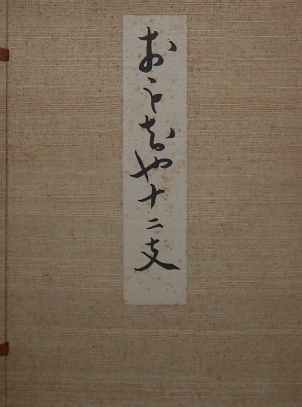 おもちや十二支